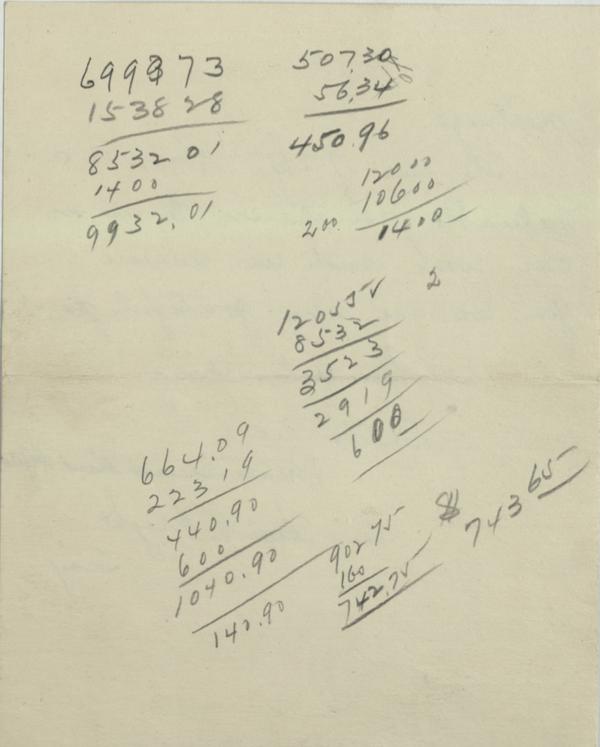 699373
153828
8532 01
1400
9932.01
507.30
56.34
450.96
12000
10600
200. 1400
2
12055
8532
3523
2919
600
664.09
223.19
440.90
600
1040.90
140.90
902 75
160
742.75
$
743 65